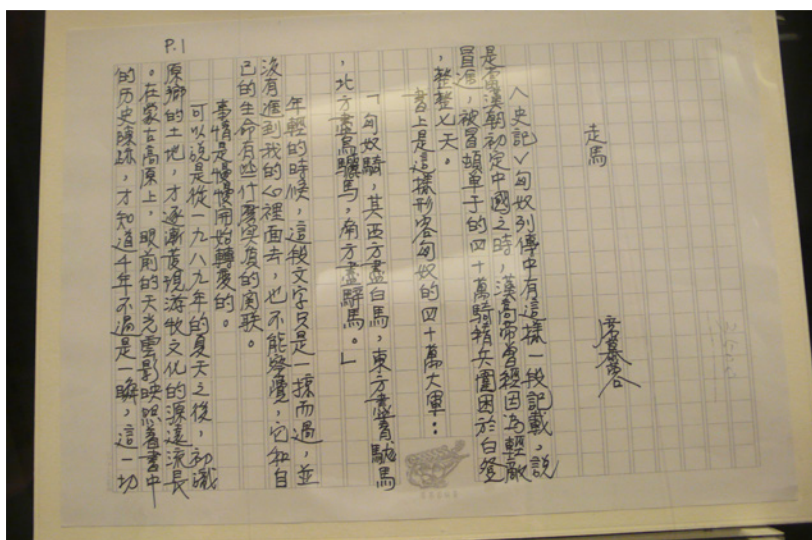 走馬
席慕蓉
〈史記〉匈奴列傳中有這樣一段記載，說
是當漢朝初定中國之時，漢高帝曾經因為輕敵
冒進，被冒頓單于的四十萬騎精兵圍困於白登
，整整七天。
書上是這樣形容匈奴的四十萬大軍：
「匈奴騎，其西方盡白馬，東方盡青駹馬
，北方盡烏驪馬，南方盡騂馬。」
年輕的時候，這段文字只是一掠而過，並
沒有進到我的心裡面去，也不能察覺，它和自
己的生命有些什麼實質的關联。
事情是慢慢開始轉變的。
可以說是從一九八九年的夏天之後，初識
原鄉的土地，才逐漸發現游牧文化的源遠流長
。在蒙古高原上，眼前的天光雲影映照着書中
的历史陳跡，才知道千年不過是一瞬，這一切
P.1